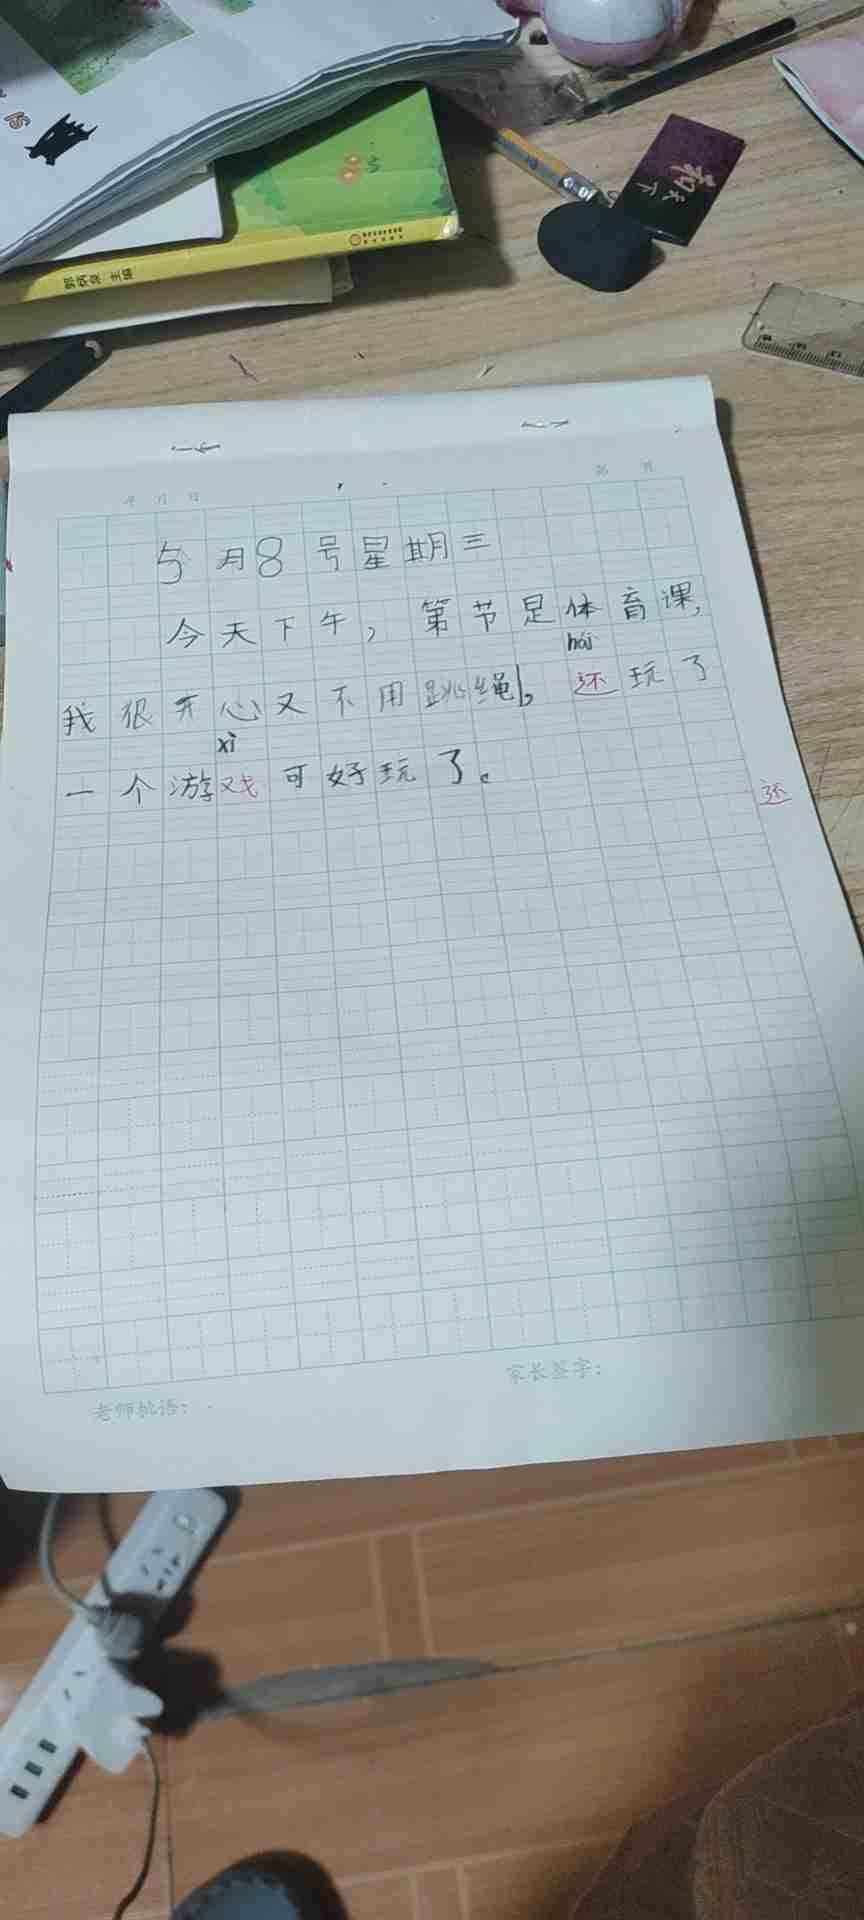 郭炳泉 主编
年 月 日
第 页
5月8号星期三
今天下午,第节是体育课,
hái
我很开心又不用跳绳,还玩了
xì
一个游戏可好玩了。
还
家长签字:
老师批语: